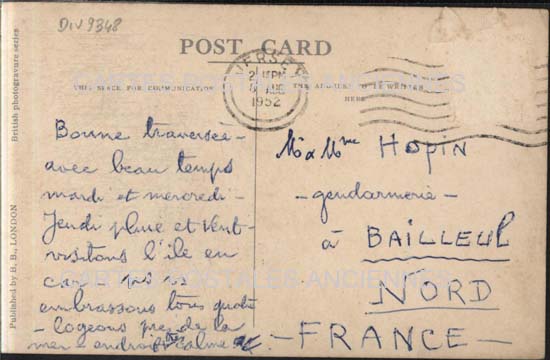 DIV 9348
POST CARD
British photogravure series
Published by B. B., LONDON
THIS SPACE FOR COMMUNICATION
THE ADDRESS TO BE WRITTEN
HERE
2 PM
AUG
1952
CARTES POSTALES ANCIENNES
Bonne traversée -
avec beau temps
mardi et mercredi -
Jeudi pluie et vent -
visitons l'île en
car -
embrassons tous quatre
- logeons près de la
mer endroit très calme
M & Mme HOPIN
- gendarmerie -
à BAILLEUL
NORD
- FRANCE -
CARTES POSTALES ANCIENNES